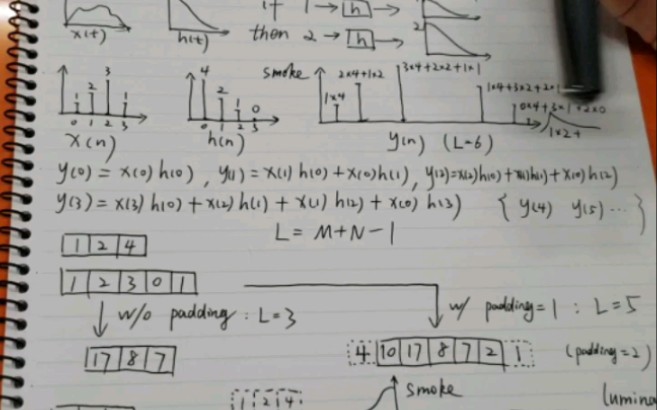 if 1 → h →
x(t) h(t) then 2 → h → 2
smoke
1 2 3 1
0 1 2 3
x(n)
4 2 1 0
0 1 2 3
h(n)
1×4 2×4+1×2 3×4+2×2+1×1
y(n) (L=6)
y(0) = x(0) h(0) , y(1) = x(1) h(0) + x(0) h(1) , y(2)=x(2)h(0)+x(1)h(1)+x(0)h(2)
y(3) = x(3) h(0) + x(2) h(1) + x(1) h(2) + x(0) h(3) { y(4) y(5) ... }
L = M+N-1
1 2 4
1 2 3 0 1
w/o padding : L=3 w/ padding=1 : L=5
17 8 7 4 10 17 8 7 2 1 (padding=2)
1 2 4 smoke